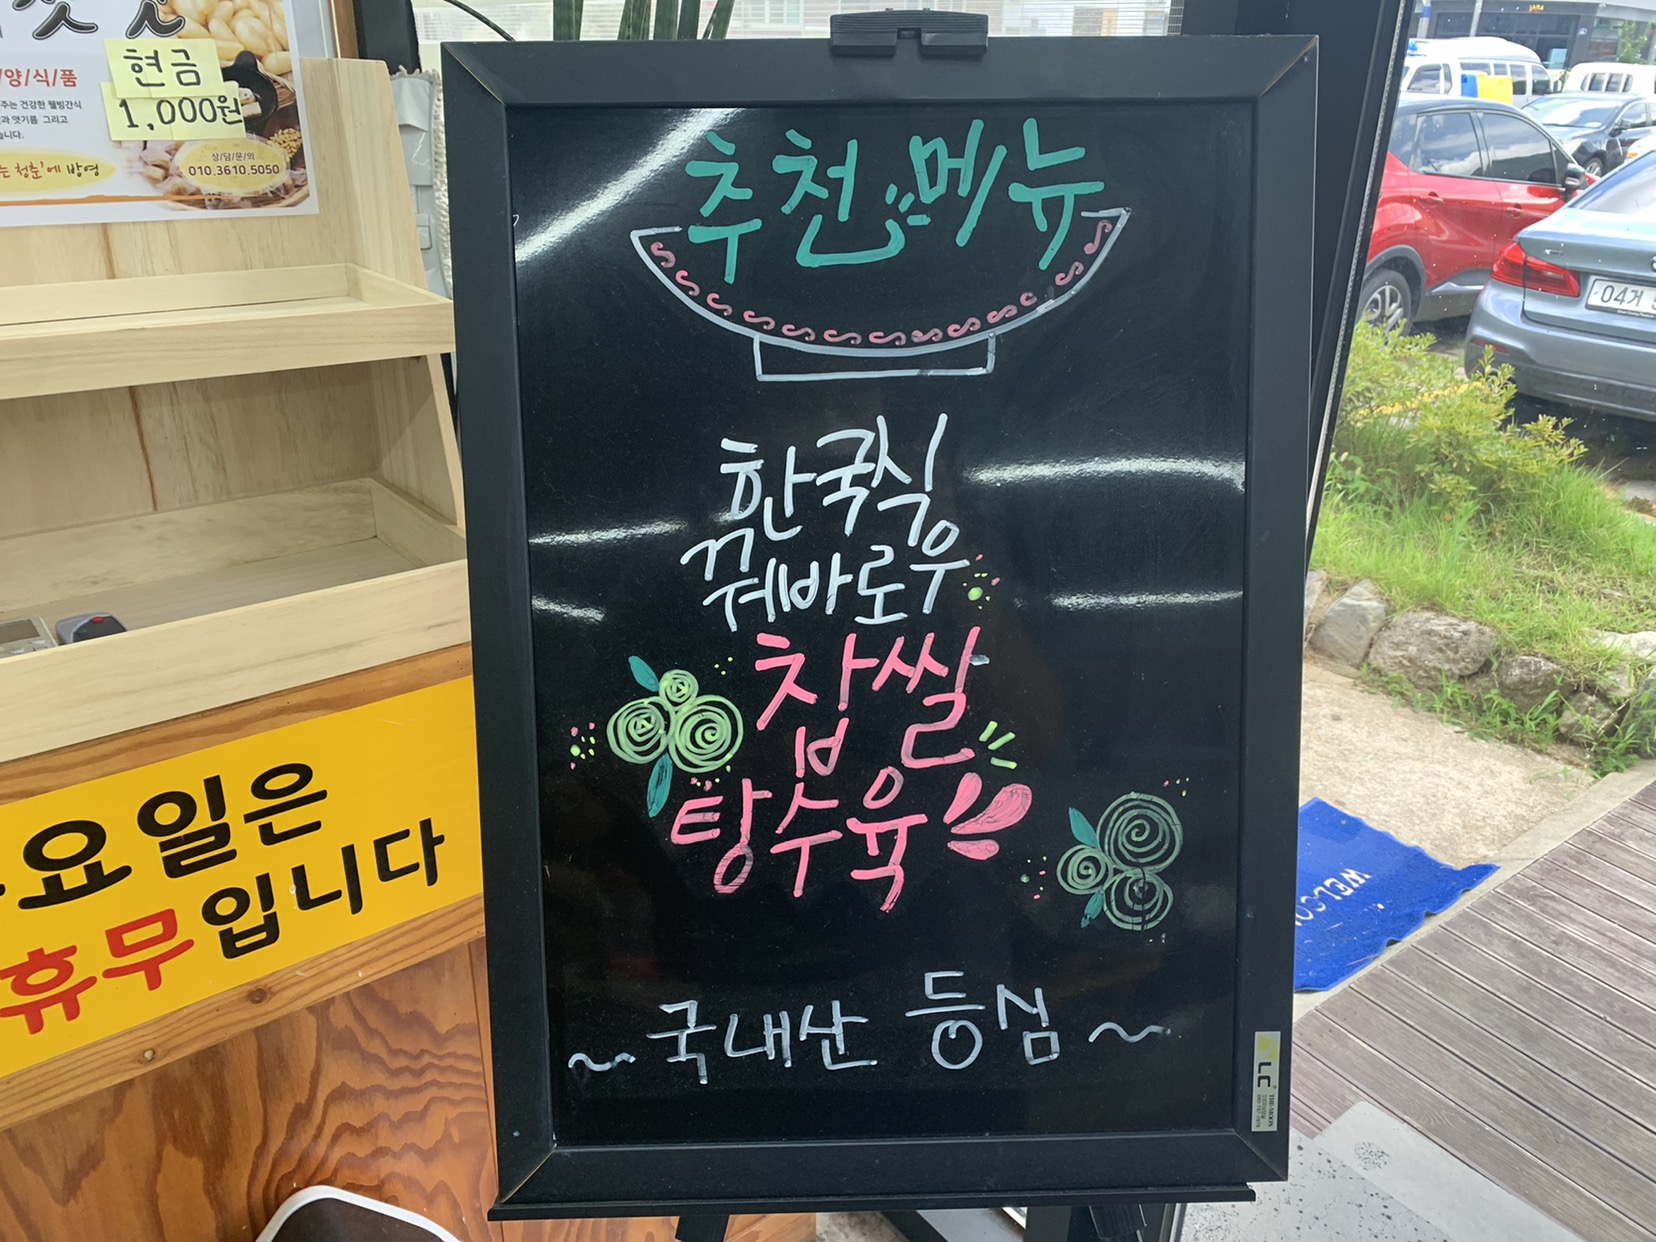 현금
1,000원
양/식/품
주는 건강한 웰빙간식
과 엿기름 그리고
습니다.
는 청춘'에 방영
상/담/문/의
010.3610.5050
추천 메뉴
한국식
꿔바로우
찹쌀
탕수육
~국내산 등심~
요일은
휴무입니다
WELCO
04거
LC
THE MOON